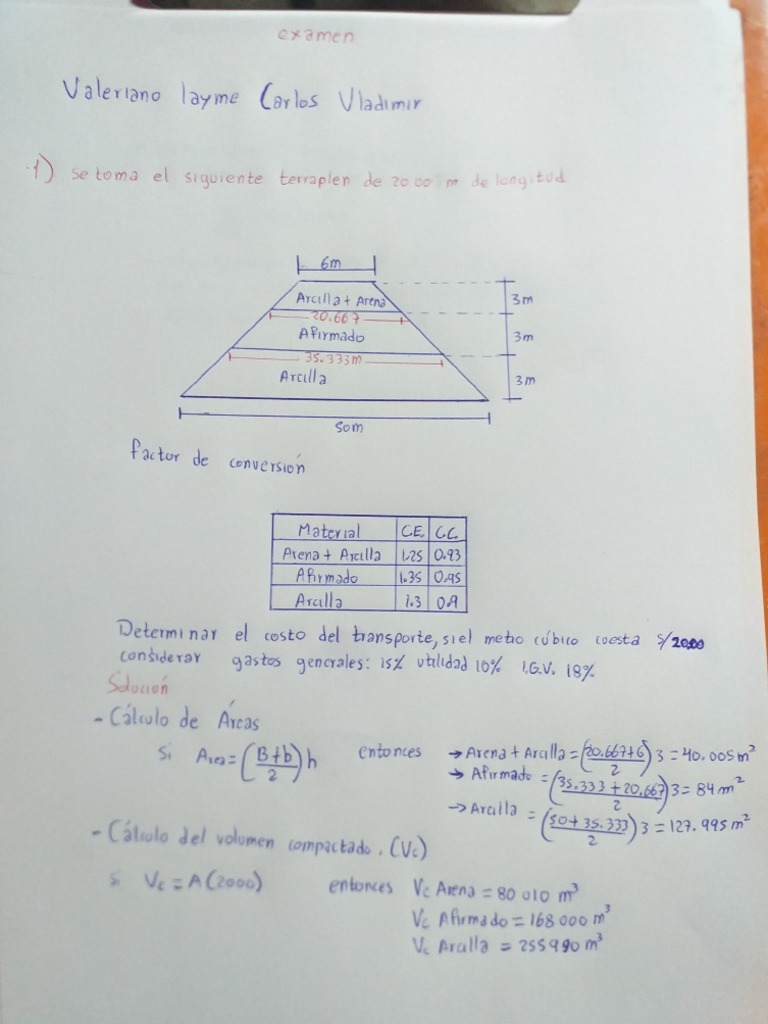 examen
Valeriano layme Carlos Vladimir
1) se toma el siguiente terraplen de 2000 m de longitud
6m
Arcilla + Arena
3m
20.667
Afirmado
3m
35.333m
Arcilla
3m
50m
factor de conversión
Material C.E. C.C.
Arena + Arcilla 1.25 0.93
Afirmado 1.35 0.95
Arcilla 1.3 0.9
Determinar el costo del transporte, si el metro cúbico cuesta S/20.00
considerar gastos generales: 15% utilidad 10% I.G.V. 18%
Solución
- Cálculo de Áreas
si Area = (B+b/2)h entonces → Arena + Arcilla = (20.667+6/2)3 = 40.005m²
→ Afirmado = (35.333+20.667/2)3 = 84 m²
→ Arcilla = (50+35.333/2)3 = 127.995 m²
- Cálculo del volumen compactado. (Vc)
si Vc = A(2000) entonces Vc Arena = 80 010 m³
Vc Afirmado = 168 000 m³
Vc Arcilla = 255990 m³